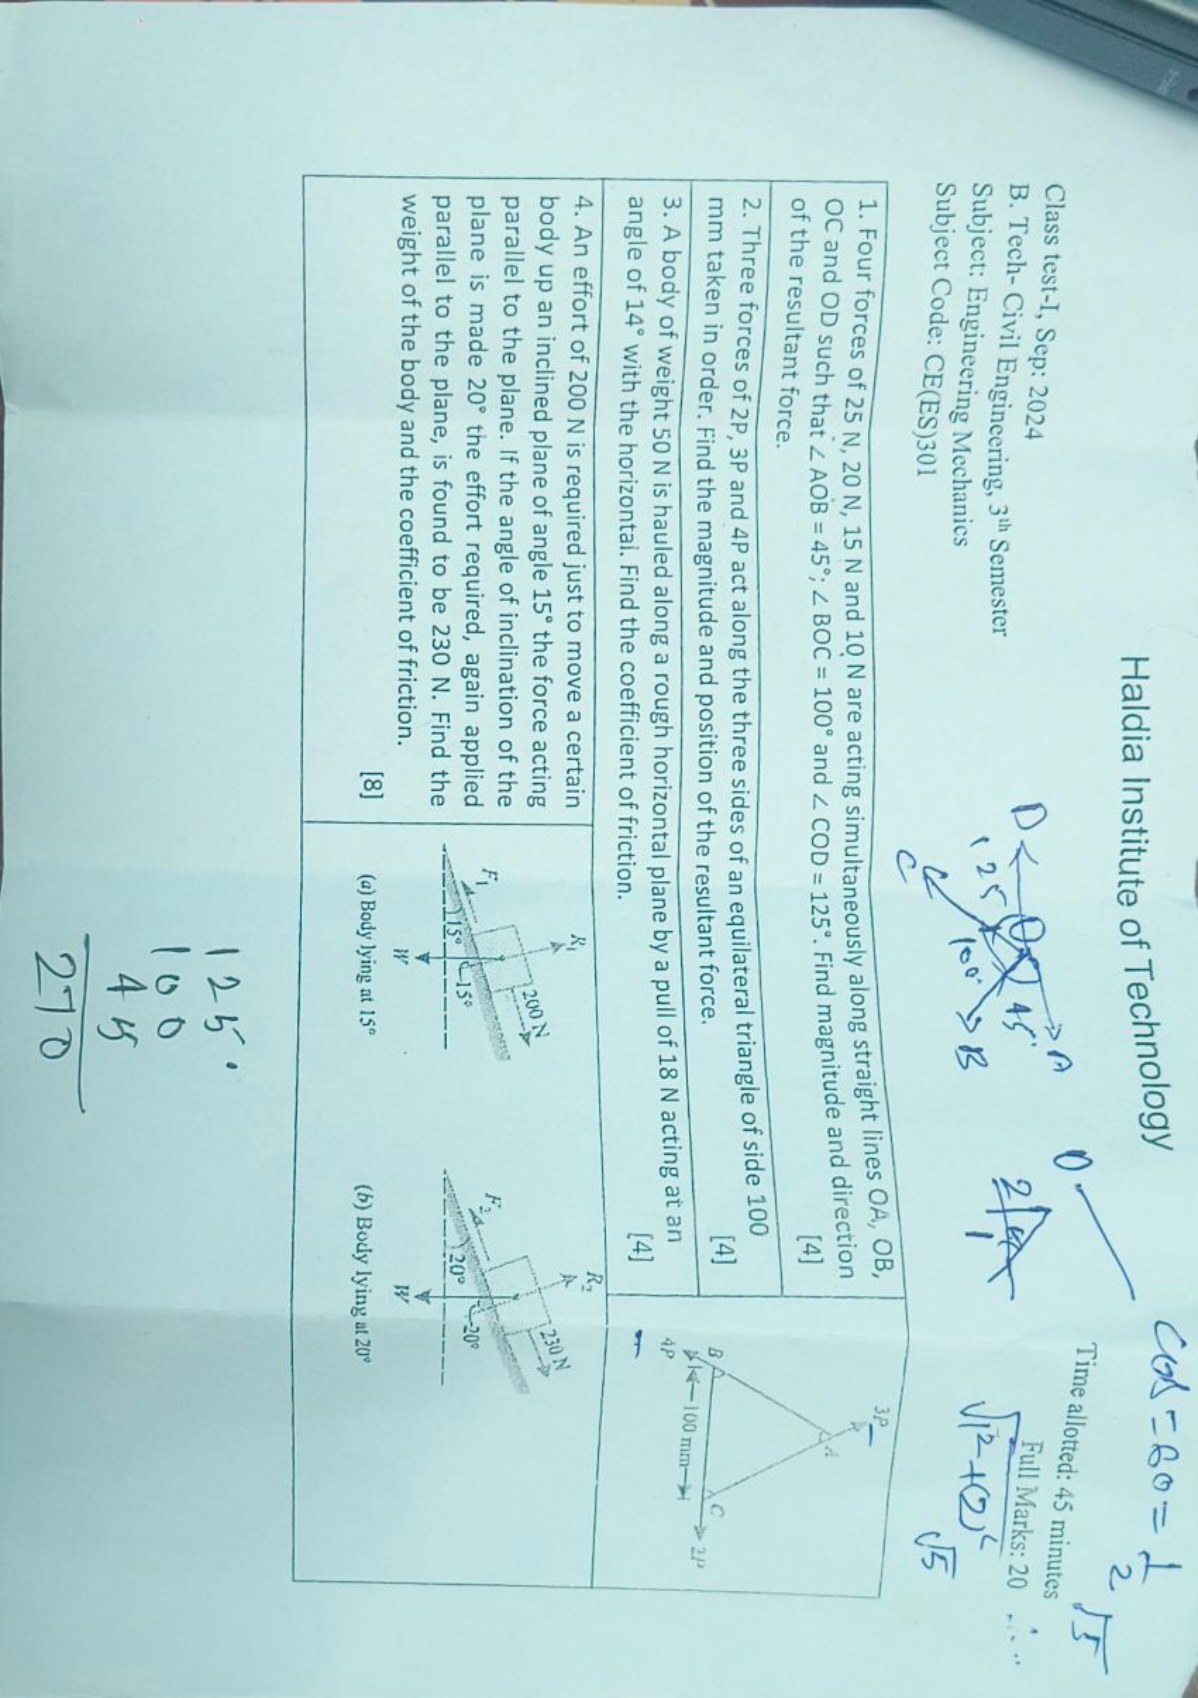 Haldia Institute of Technology
Class test-I, Sep: 2024
Time allotted: 45 minutes
B. Tech- Civil Engineering, 3th Semester
Full Marks: 20
Subject: Engineering Mechanics
Subject Code: CE(ES)301
cos = 60 = 1/2
√5
√1² + (2)²
√5
O
D
A
O
45°
125
100°
B
C
1. Four forces of 25 N, 20 N, 15 N and 10 N are acting simultaneously along straight lines OA, OB,
OC and OD such that ∠ AOB = 45°; ∠ BOC = 100° and ∠ COD = 125°. Find magnitude and direction
of the resultant force. [4]
2. Three forces of 2P, 3P and 4P act along the three sides of an equilateral triangle of side 100
mm taken in order. Find the magnitude and position of the resultant force. [4]
3. A body of weight 50 N is hauled along a rough horizontal plane by a pull of 18 N acting at an
angle of 14° with the horizontal. Find the coefficient of friction. [4]
3P
A
B
C
2P
100 mm
4P
4. An effort of 200 N is required just to move a certain
body up an inclined plane of angle 15° the force acting
parallel to the plane. If the angle of inclination of the
plane is made 20° the effort required, again applied
parallel to the plane, is found to be 230 N. Find the
weight of the body and the coefficient of friction.
[8]
R1
200 N
F1
15°
15°
W
(a) Body lying at 15°
R2
230 N
F2
20°
20°
W
(b) Body lying at 20°
125°
100
45
270